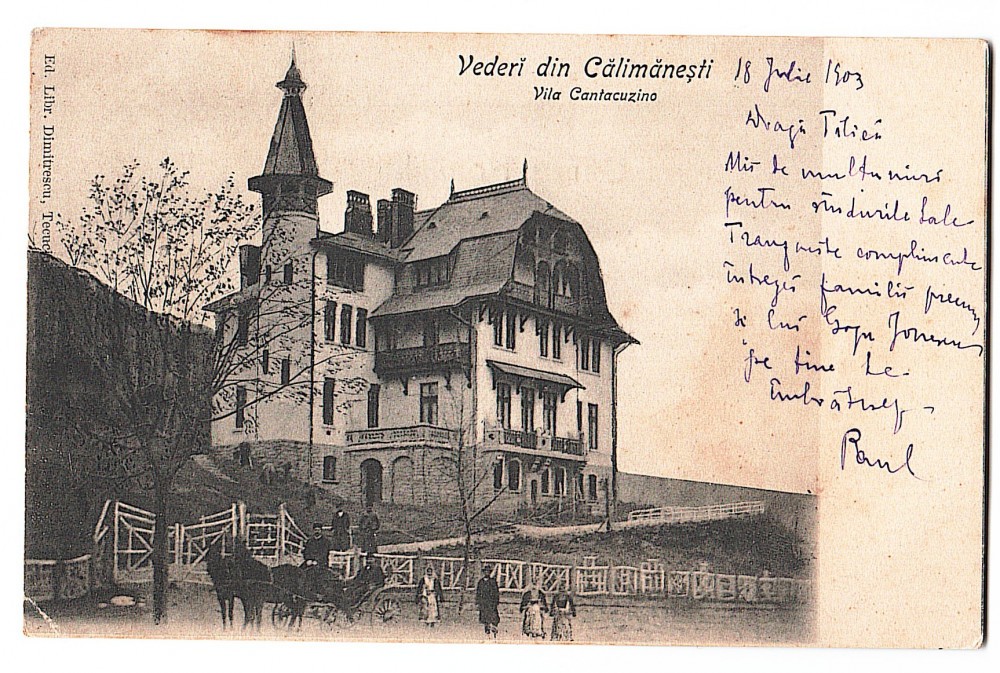 Vederĭ din Călimănești
Vila Cantacuzino
Ed. Libr. Dimitrescu, Tecuc
18 Julie 1903
Dragă Titică
Mii de mulțumiri
pentru rîndurile tale
complimente
întregei familii precum
și lui Gogu Jonescu
pe tine te
îmbrățișez
Paul